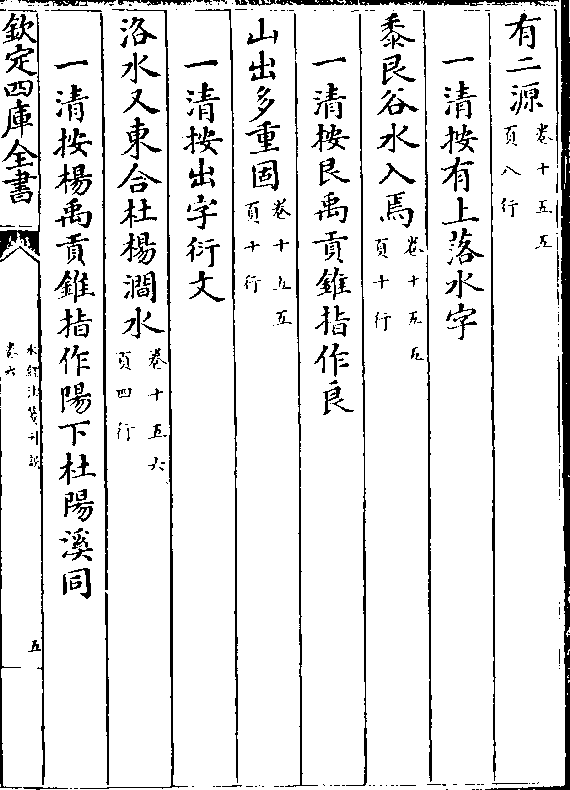 有二源卷十五五頁八行
一清按有上落水字
黍艮谷水入焉卷十五五頁十行
一清按艮禹貢錐指作良
山出多重固卷十五五頁十行
一清按出字衍文
洛水又東合杜楊澗水卷十五六頁四行
一清按楊禹貢錐指作陽下杜陽溪同
欽定四庫全書
水經注箋刊誤
卷六
五